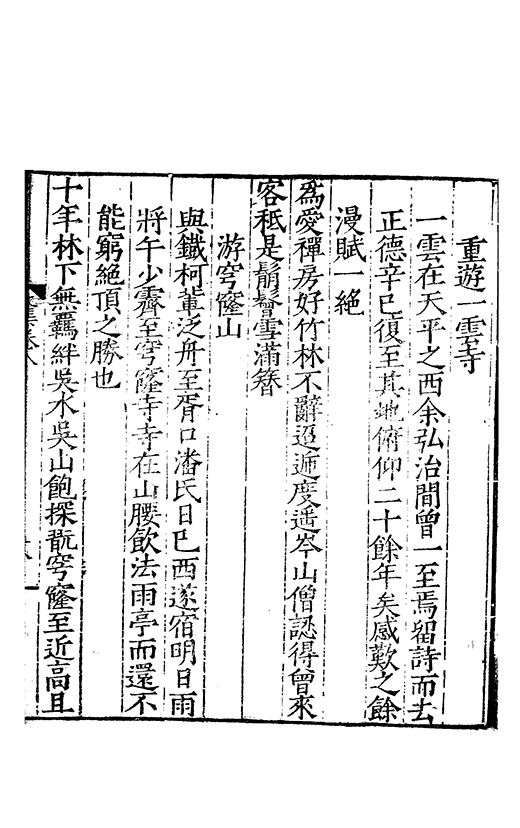 重遊一雲寺
一雲在天平之西余弘治間曾一至焉留詩而去
正德辛巳復至其地俯仰二十餘年矣感歎之餘
漫賦一絕
爲愛禪房好竹林不辭迢遞度遥岑山僧認得曾來
客秪是鬅鬙雪滿簪
游穹窿山
與鐵柯軰泛舟至胥口潘氏日巳西遂宿明日雨
將午少霽至穹窿寺寺在山腰飲法雨亭而還不
能窮絶頂之勝也
十年林下無羈絆吳水吳山飽探翫穹窿至近高且